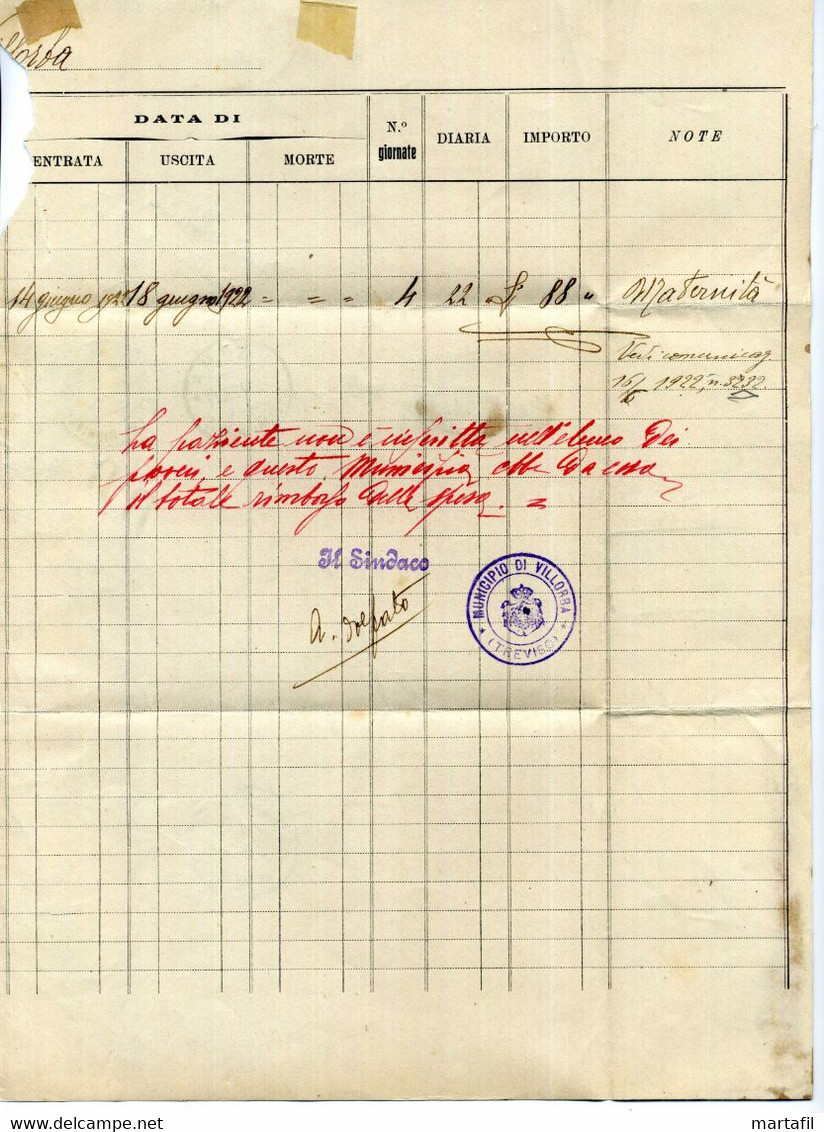 illorba
DATA DI
ENTRATA USCITA MORTE N.º giornate DIARIA IMPORTO NOTE
14 giugno 1922 18 giugno 1922 " " " 4 22 " L. 88 " Maternità
Vedi comunicaz.
16/6 1922, n. 3232.
La paziente non è inscritta nell'elenco dei
poveri e questo Municipio ebbe da essa
il totale rimborso delle spese. =
Il Sindaco
A.
MUNICIPIO DI VILLORBA
(TREVISO)
delcampe.net
martafil